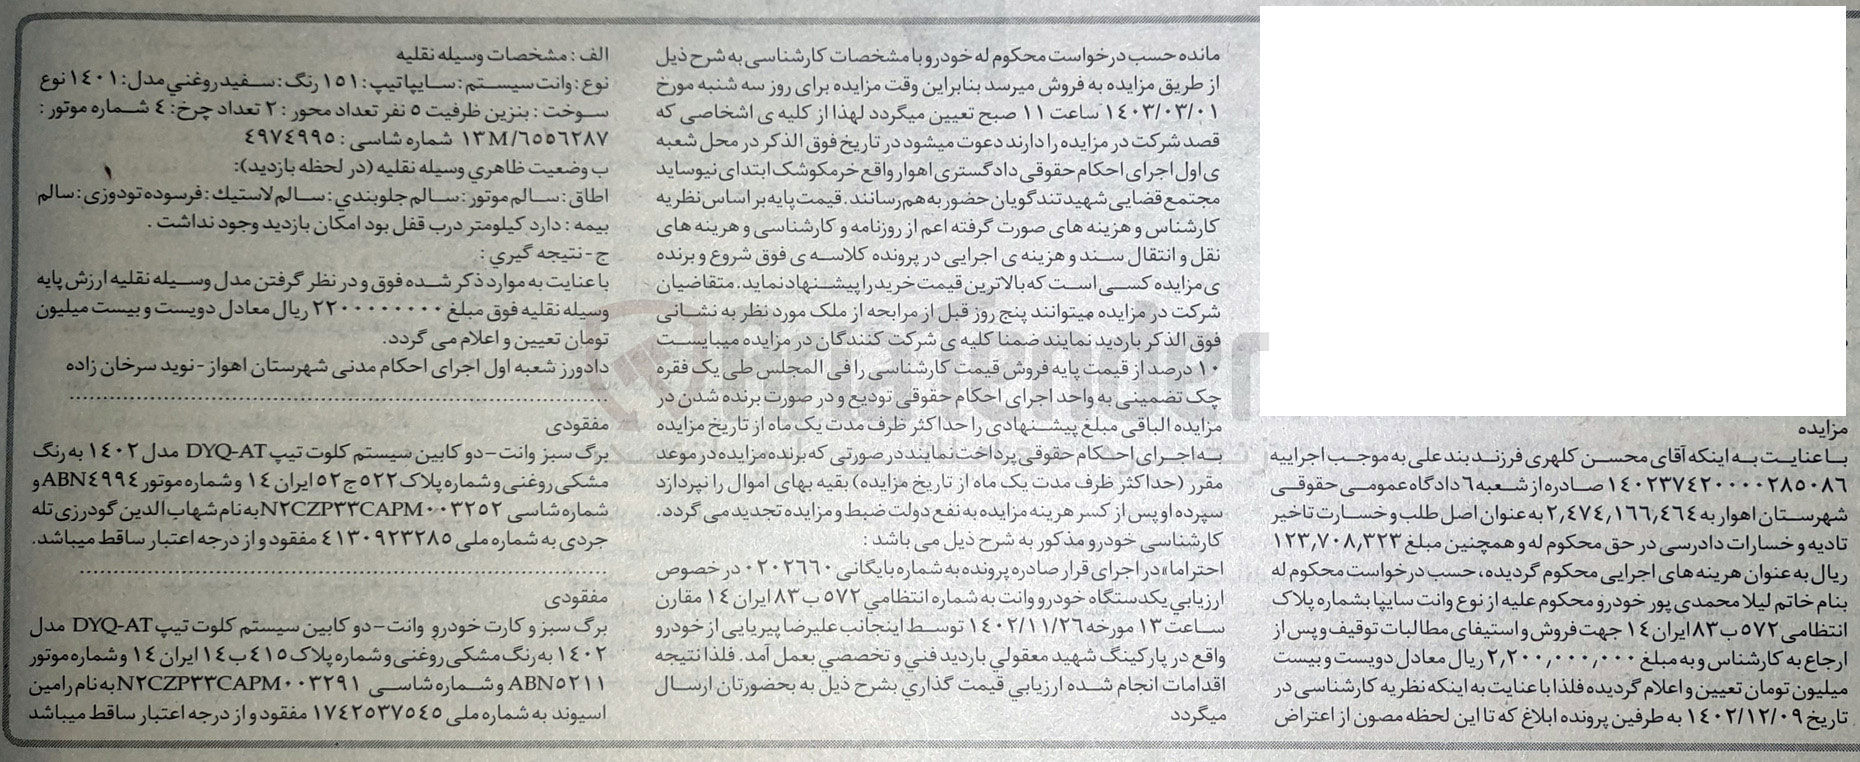 مزایده
با عنایت به اینکه آقای محسن کلهری فرزند بند علی به موجب اجراییه
۱۴۰۲۳۷۴۲۰۰۰۰۲۸۵۰۸۶ صادره از شعبه ۶ دادگاه عمومی حقوقی
شهرستان اهوار به ۲,۴۷۴,۱۶۶,۴۶۴ به عنوان اصل طلب و خسارت تاخیر
تادیه و خسارات دادرسی در حق محکوم له و همچنین مبلغ ۱۲۳,۷۰۸,۳۲۳
ریال به عنوان هرینه های اجرایی محکوم گردیده، حسب درخواست محکوم له
بنام خاتم لیلا محمدی پور خودرو محکوم علیه از نوع وانت سایپا بشماره پلاک
انتظامی ۵۷۲ ب ۸۳ ایران ۱۴ جهت فروش و استیفای مطالبات توقیف و پس از
ارجاع به کارشناس و به مبلغ ۲,۲۰۰,۰۰۰,۰۰۰ ریال معادل دویست و بیست
میلیون تومان تعیین و اعلام گردیده فلذا با عنایت به اینکه نظریه کارشناسی در
تاریخ ۱۴۰۲/۱۲/۰۹ به طرفین پرونده ابلاغ که تا این لحظه مصون از اعتراض
مانده حسب درخواست محکوم له خودرو با مشخصات کارشناسی به شرح ذیل
از طریق مزایده به فروش میرسد بنابراین وقت مزایده برای روز سه شنبه مورخ
۱۴۰۳/۰۳/۰۱ ساعت ۱۱ صبح تعیین میگردد لهذا از کلیه ی اشخاصی که
قصد شرکت در مزایده را دارند دعوت میشود در تاریخ فوق الذکر در محل شعبه
ی اول اجرای احکام حقوقی دادگستری اهوار واقع خرمکوشک ابتدای نیوساید
مجتمع قضایی شهید تندگویان حضور به هم رسانند. قیمت پایه بر اساس نظریه
کارشناس و هزینه های صورت گرفته اعم از روزنامه و کارشناسی و هرینه های
نقل و انتقال سند و هزینه ی اجرایی در پرونده کلاسه ی فوق شروع و برنده
ی مزایده کسی است که بالاترین قیمت خرید را پیشنهاد نماید. متقاضیان
شرکت در مزایده میتوانند پنج روز قبل از مرابحه از ملک مورد نظر به نشانی
فوق الذکر باردید نمایند ضمنا کلیه ی شرکت کنندگان در مزایده میبایست
۱۰ درصد از قیمت پایه فروش قیمت کارشناسی را فی المجلس طی یک فقره
چک تضمینی به واحد اجرای احکام حقوقی تودیع و در صورت برنده شدن در
مزایده الباقی مبلغ پیشنهادی را حداکثر ظرف مدت یک ماه از تاریخ مزایده
به اجرای احکام حقوقی پرداخت نمایند در صورتی که برنده مزایده در موعد
مقرر (حداکثر ظرف مدت یک ماه از تاریخ مزایده) بقیه بهای اموال را نپردازد
سپرده او پس از کسر هرینه مزایده به نفع دولت ضبط و مزایده تجدید می گردد.
کارشناسی خودرو مذکور به شرح ذیل می باشد :
احتراما» در اجرای قرار صادره پرونده به شماره بایگانی ۰۲۰۲۶۶۰ در خصوص
ارزیابي یکدستگاه خودرو وانت به شماره انتظامي ۵۷۲ ب ۸۳ ایران ۱۴ مقارن
ساعت ۱۳ مورخه ۱۴۰۲/۱۱/۲۶ توسط اینجانب علیرضا پیریایی از خودرو
واقع در پارکینگ شهید معقولي باردید فني و تخصصي بعمل آمد. فلذا نتیجه
اقدامات انجام شده ارزیابي قیمت گذاري بشرح ذیل به بحضورتان ارسال
میگردد
الف : مشخصات وسیله نقلیه
نوع : وانت سیستم : سایپا تیپ : ۱۵۱ رنگ : سفید روغني مدل : ۱۴۰۱ نوع
سوخت : بنزین ظرفیت ۵ نفر تعداد محور : ۲ تعداد چرخ : ۴ شماره موتور :
۱۳M/۶۵۵۶۲۸۷ شماره شاسی : ۴۹۷۴۹۹۵
ب وضعیت ظاهري وسیله نقلیه (در لحظه بازدید):
اطاق : سالم موتور : سالم جلوبندي : سالم لاستیك : فرسوده تودوزی : سالم
بیمه : دارد کیلومتر درب قفل بود امکان بازدید وجود نداشت .
ج - نتیجه گیري :
با عنایت به موارد ذکر شده فوق و در نظر گرفتن مدل وسیله نقلیه ارزش پایه
وسیله نقلیه فوق مبلغ ۲۲۰۰۰۰۰۰۰۰ ریال معادل دویست و بیست میلیون
تومان تعیین و اعلام می گردد.
دادورز شعبه اول اجرای احکام مدنی شهرستان اهواز - نوید سرخان زاده
مفقودی
برگ سبز وانت - دو کابین سیستم کلوت تیپ DYQ-AT مدل ۱۴۰۲ به رنگ
مشکی روغنی و شماره پلاک ۵۲۲ ج ۵۲ ایران ۱۴ و شماره موتور ABN۴۹۹۴ و
شماره شاسی N۲CZP۳۳CAPM۰۰۳۲۵۲ به نام شهاب الدین گودرزی تله
جردی به شماره ملی ۴۱۳۰۹۲۳۲۸۵ مفقود و از درجه اعتبار ساقط میباشد.
مفقودی
برگ سبز و کارت خودرو وانت - دو کابین سیستم کلوت تیپ DYQ-AT مدل
۱۴۰۲ به رنگ مشکی روغنی و شماره پلاک ۴۱۵ ب ۱۴ ایران ۱۴ و شماره موتور
ABN۵۲۱۱ و شماره شاسی N۲CZP۳۳CAPM۰۰۳۲۹۱ به نام رامین
اسیوند به شماره ملی ۱۷۴۲۵۳۷۵۴۵ مفقود و از درجه اعتبار ساقط میباشد